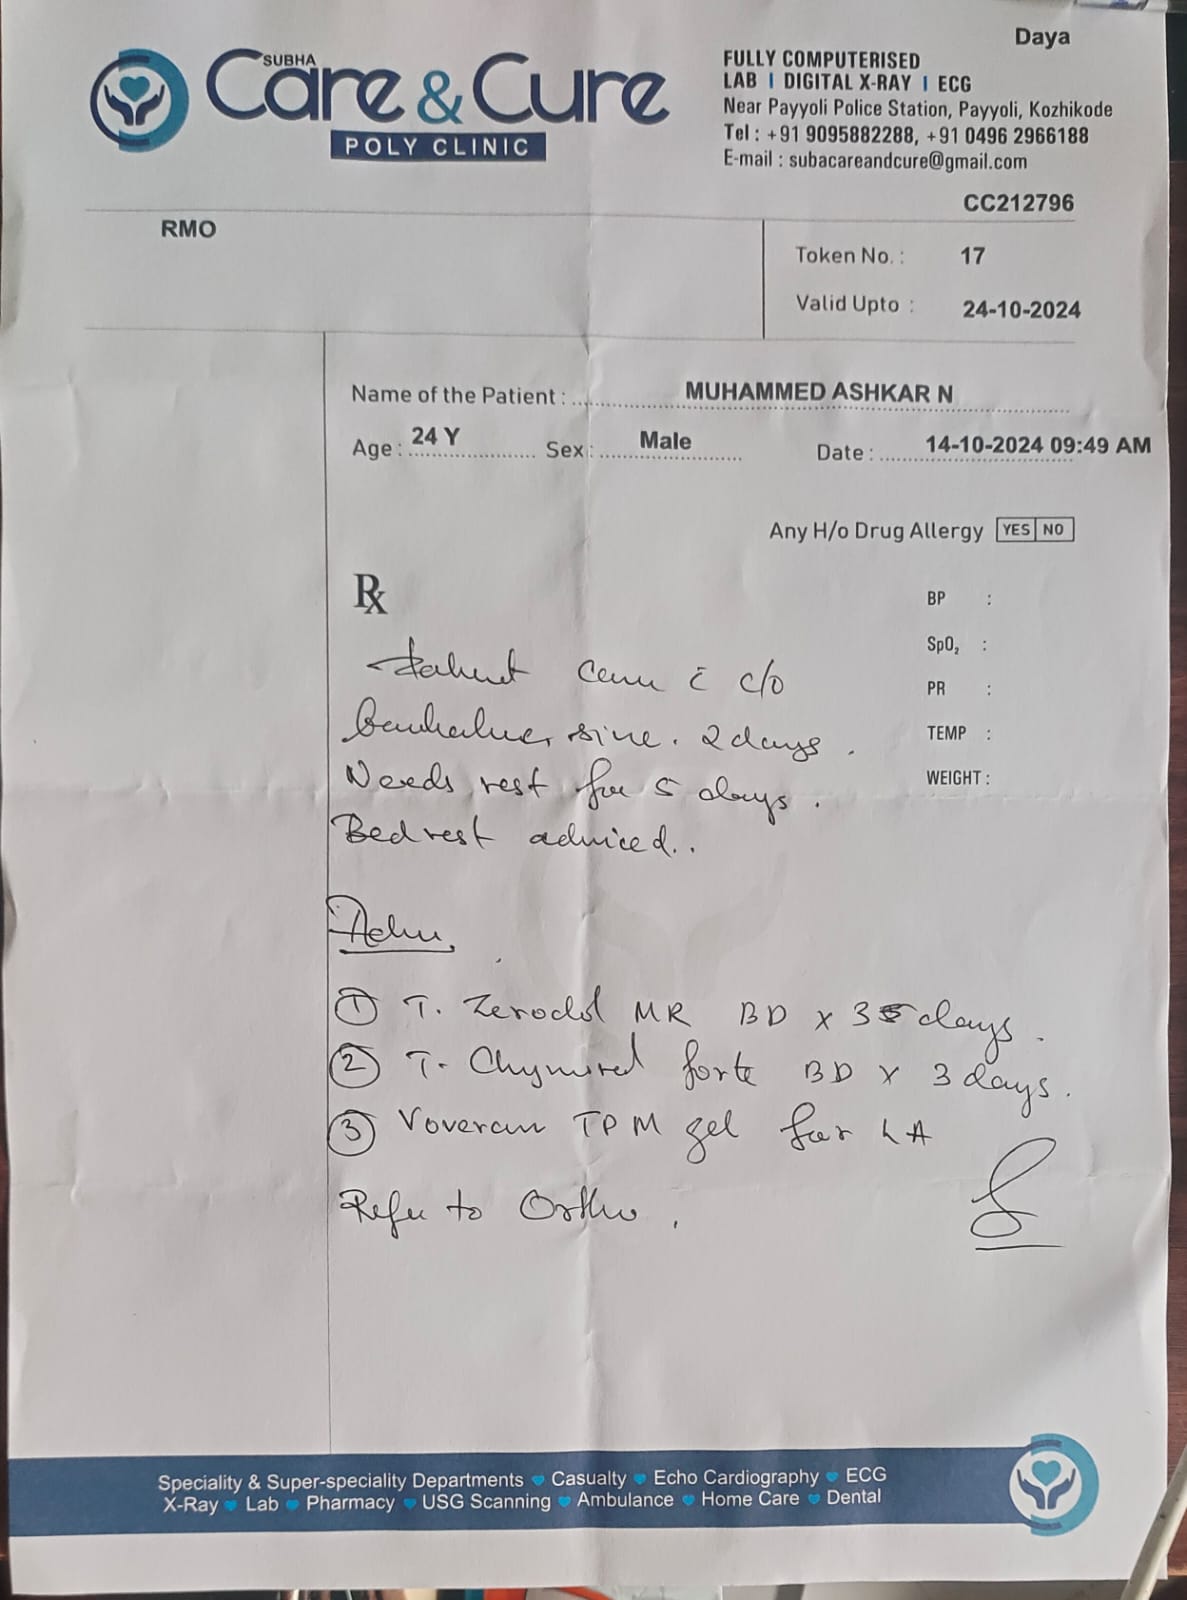 Daya
SUBHA
Care & Cure
POLY CLINIC
FULLY COMPUTERISED
LAB | DIGITAL X-RAY | ECG
Near Payyoli Police Station, Payyoli, Kozhikode
Tel : +91 9095882288, +91 0496 2966188
E-mail : subacareandcure@gmail.com
CC212796
RMO
Token No. : 17
Valid Upto : 24-10-2024
Name of the Patient : MUHAMMED ASHKAR N
Age : 24 Y Sex : Male Date : 14-10-2024 09:49 AM
Any H/o Drug Allergy YES NO
Rx
BP :
SpO₂ :
PR :
TEMP :
WEIGHT :
c̄ c/o
2 days.
Needs rest for 5 days.
Bed rest adviced..
① T. Zerodol MR BD x 3 days.
② T. Chymoral forte BD x 3 days.
③ Voveran TPM gel for LA
Refer to Ortho.
Speciality & Super-speciality Departments Casualty Echo Cardiography ECG
X-Ray Lab Pharmacy USG Scanning Ambulance Home Care Dental